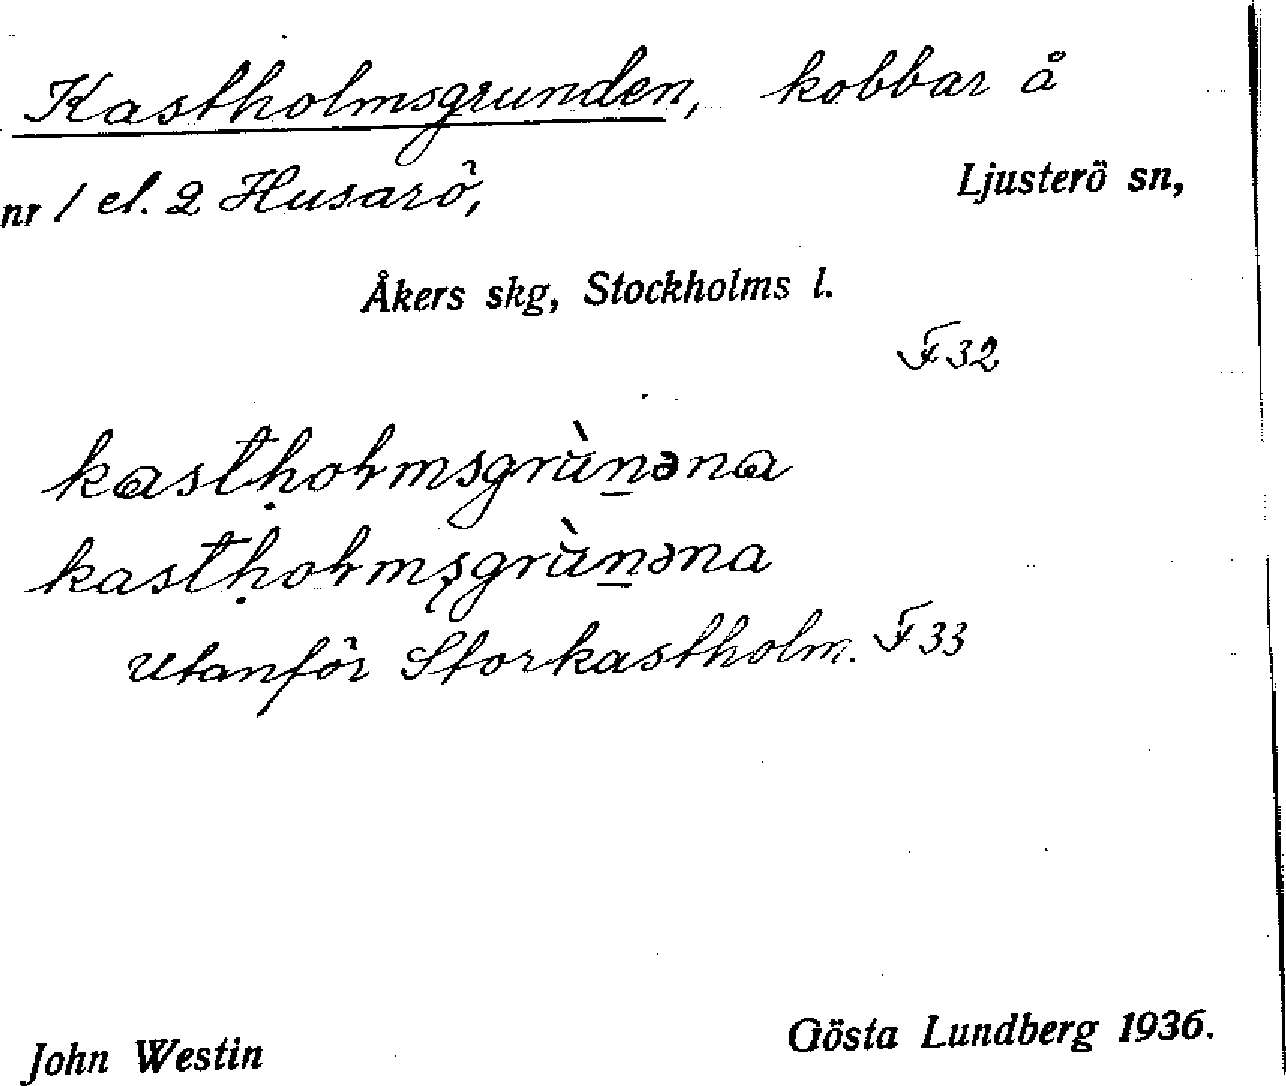 Kastholmsgrunden, kobbar å
nr 1 el. 2 Husarö, Ljusterö sn,
Åkers skg, Stockholms l.
F 32
kastḥoƚmsgrùn̲əna
kastḥoƚmşgrùn̲əna
Utanför Storkastholm. F 33
John Westin Gösta Lundberg 1936.